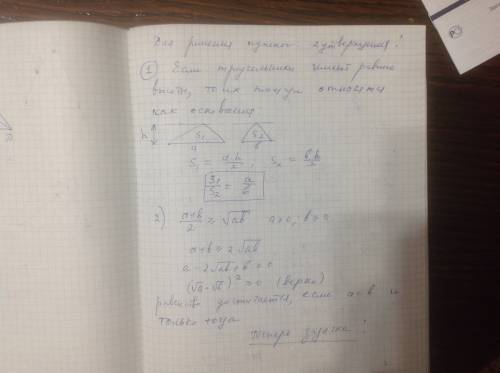 Для решения нужно 2 утверждения!
① Если треугольники имеют равные
высоты, то их площади относятся
как основания
h S₁ S₂
a b
S₁ = a·h/2 ; S₂ = b·h/2
S₁/S₂ = a/b
2) (a+b)/2 ≥ √ab a>0, b>0
a+b ≥ 2√ab
a - 2√ab + b ≥ 0
(√a-√b)² ≥ 0 (верно)
равенство достигается, если a=b и
только тогда
Теперь задача!